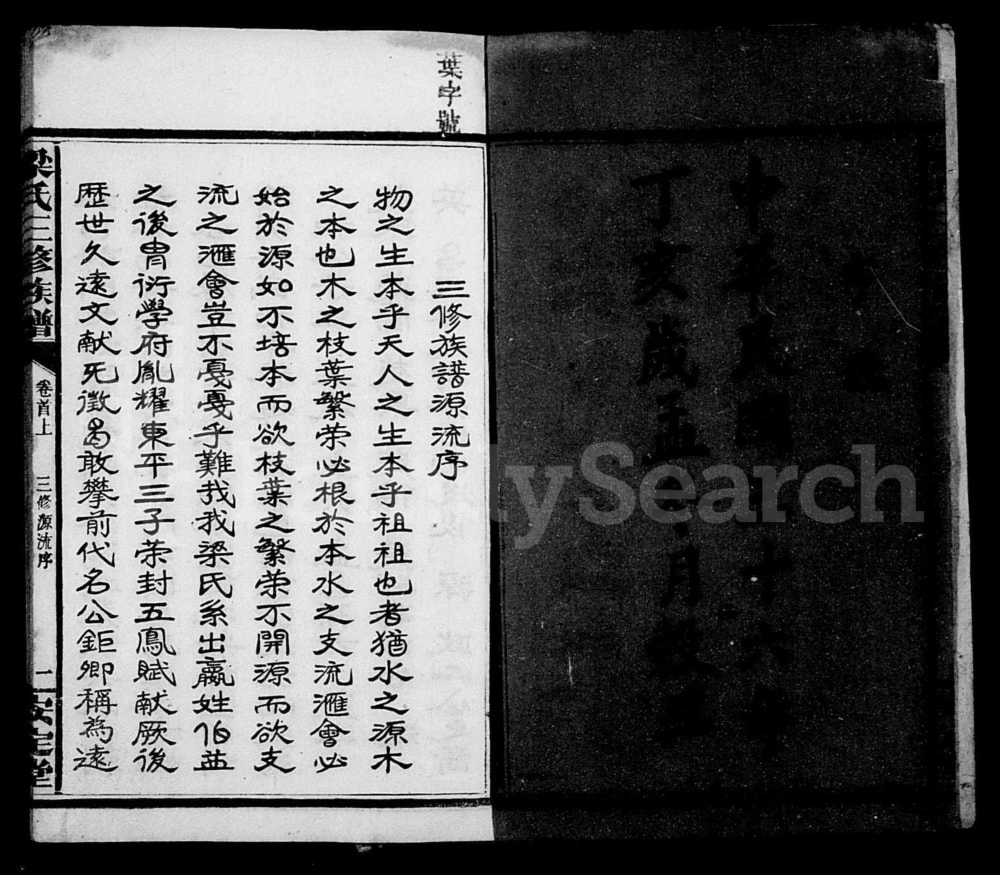 中華民國三十六年
丁亥歲孟月
葉字號
三修族譜源流序
物之生本乎天人之生本乎祖祖也者猶水之源木
之本也木之枝葉繁荣必根於本水之支流滙會必
始於源如不培本而欲枝葉之繁荣不開源而欲支
流之滙會豈不戞戞乎難我我梁氏系出嬴姓伯益
之後冑衍學府胤耀東平三子荣封五鳳賦献厥後
歷世久遠文献旡徵曷敢攀前代名公鉅卿稱為遠
梁氏三修族譜
卷首上
三修源流序
二
安定堂
MySearch